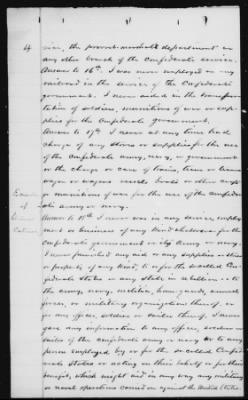 4 sion, the provost-marshal's department or
any other branch of the Confederate service.
Answer to 16th. I was never employed on any
railroad in the service of the Confederate
government. I never aided in the transpor-
tation of soldiers, munitions of war or sup-
plies for the Confederate government.
Answer to 17th I never at any time had
charge of any stores or supplies for the use
of the Confederate army, navy, or government
or the charge or care of trains, teams
wagons vessels boats or other
or munitions of war for the use of the Confeder-
ate army or navy.
Answer to 18th I never was in any service, employ-
ment or business of any kind whatever for the
Confederate government or its Army or navy.
I never furnished any aid or any supplies
or property of any kind, to or for the so called Con-
federate States or any state in rebellion or to
the army, navy, militia, home guards, armed
forces, or military organization thereof, or
for any officer, soldier or sailor thereof. I never
gave any information to any officer, soldier or
sailor of the Confederate army or navy or to any
person employed by or for the so called Confed-
erate States or acting on their behalf or for their
benefit, which might aid in any way any military
or naval operations carried on against the United States